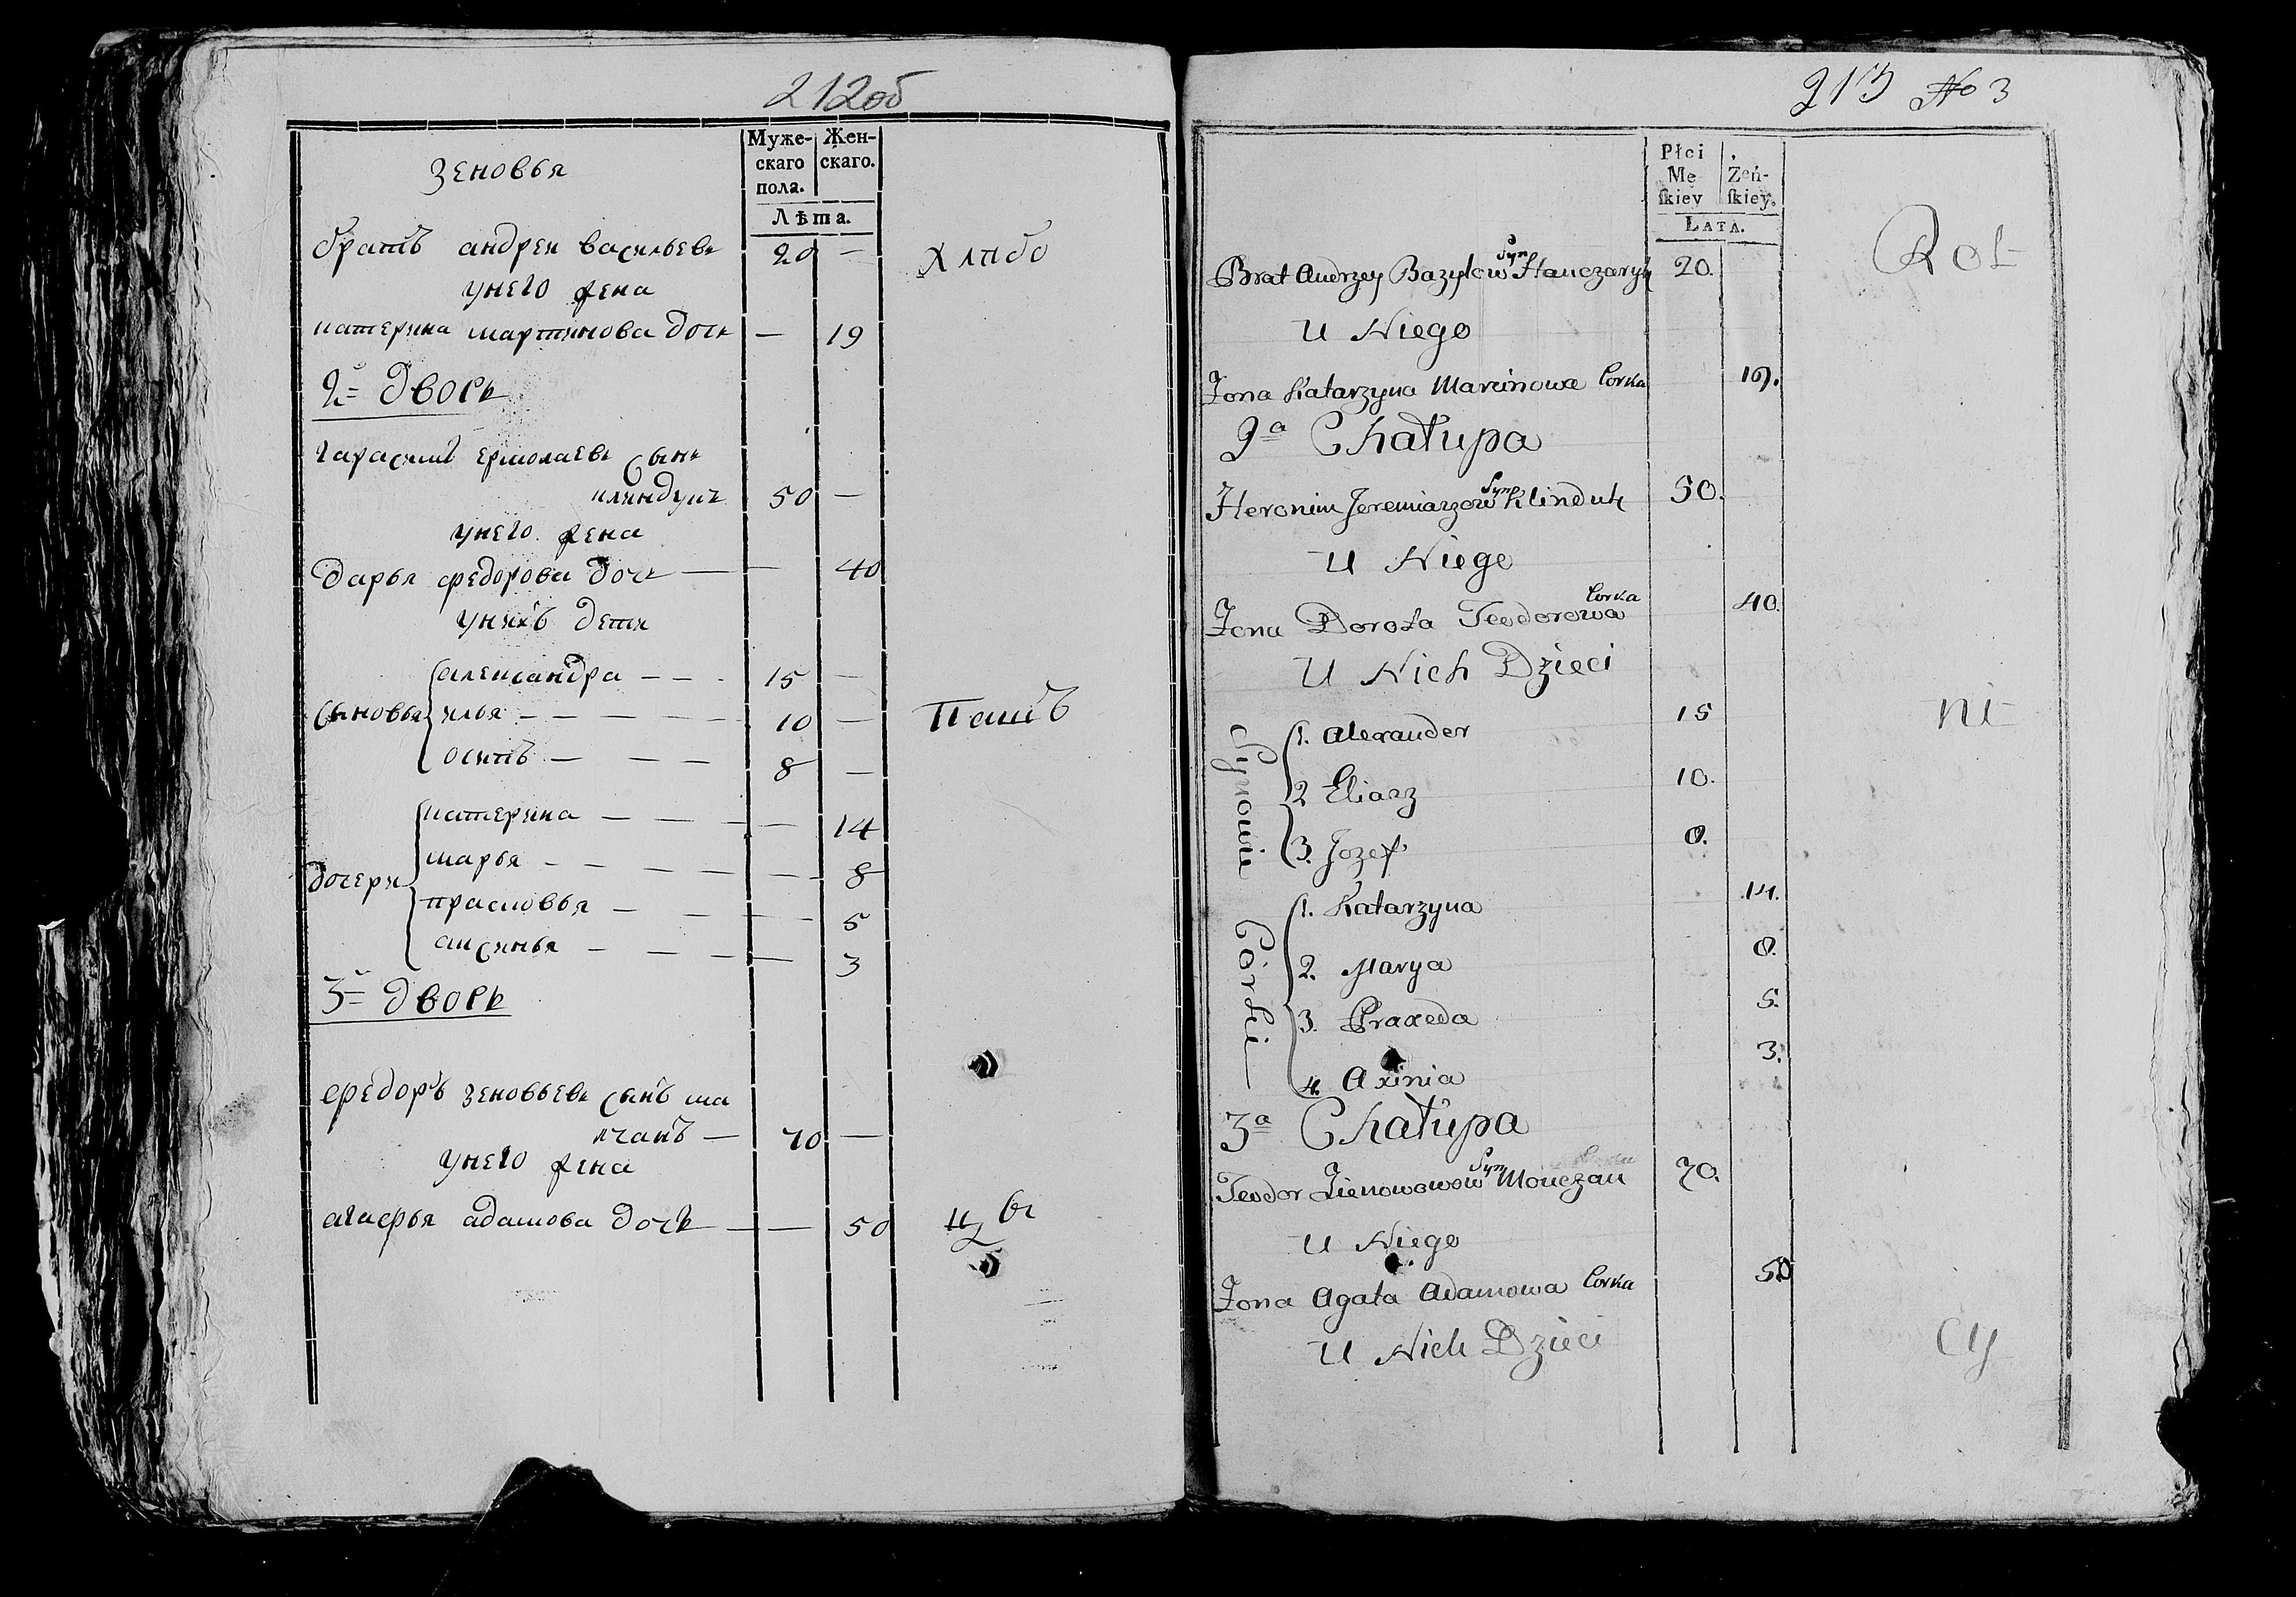 212об
Муже-
скаго
пола.
Жен-
скаго.
Лѣта.
зеновья
братъ андреи васильевъ 20 —
хлпбо
унего жена
катерина мартинова дочь — 19
2й дворъ
гарасимъ ермолаевъ сынъ
клиндукъ 50 —
унего жена
дарья федорова дочь — — 40
унихъ дети
сыновья
александра — — 15 —
илья — — — — — 10 —
осипъ — — — 8 —
Пашъ
дочери
катерина — — — — 14
марья — — — — — 8
прасковья — — — — 5
аксинья — — — — 3
3й дворъ
федоръ зеновьевъ сынъ ма
нчанъ — 70 —
унего жена
агафья адамова дочь — — 50
цы
213 № 3
Płci
Mę
ſkiey
Żeń-
ſkiey.
Łata.
Brat Andrzey Bazylow Syn Hanczaryk 20.
Rol
U Niego
Żona Katarzyna Marcinowa Corka 19.
2a Chałupa
Heronim Jeremiaszow Syn Klinduk 50.
U Niego
Żona Dorota Teodorowa Corka 40.
U Nich Dzieci
Synowie
1. Alexander 15
ni
2 Eliasz 10.
3. Jozef 8.
Córki —
1. Katarzyna 14.
2. Marya 8.
3. Praxeda 5.
4. Axinia 3.
3a Chałupa
Teodor Zienowowow Syn Monczan 70.
U Niego
Żona Agata Adamowa Corka 50
U Nich Dzieci
cy